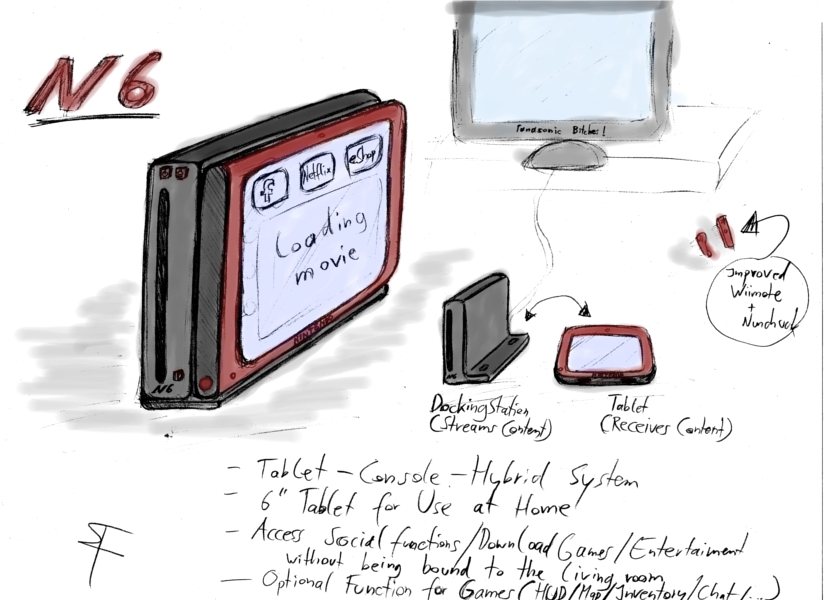 N6
Panasonic Bitches!
f
Netflix
eShop
Loading
movie
NINTENDO
N6
Improved
Wiimote
+
Nunchuck
N6
Dockingstation
(Streams Content)
Tablet
(Receives Content)
- Tablet - Console - Hybrid System
- 6" Tablet for Use at Home
- Access Social functions/Download Games/Entertaiment
without being bound to the living room
- Optional Function for Games (HUD/Map/Inventory/Chat/...)